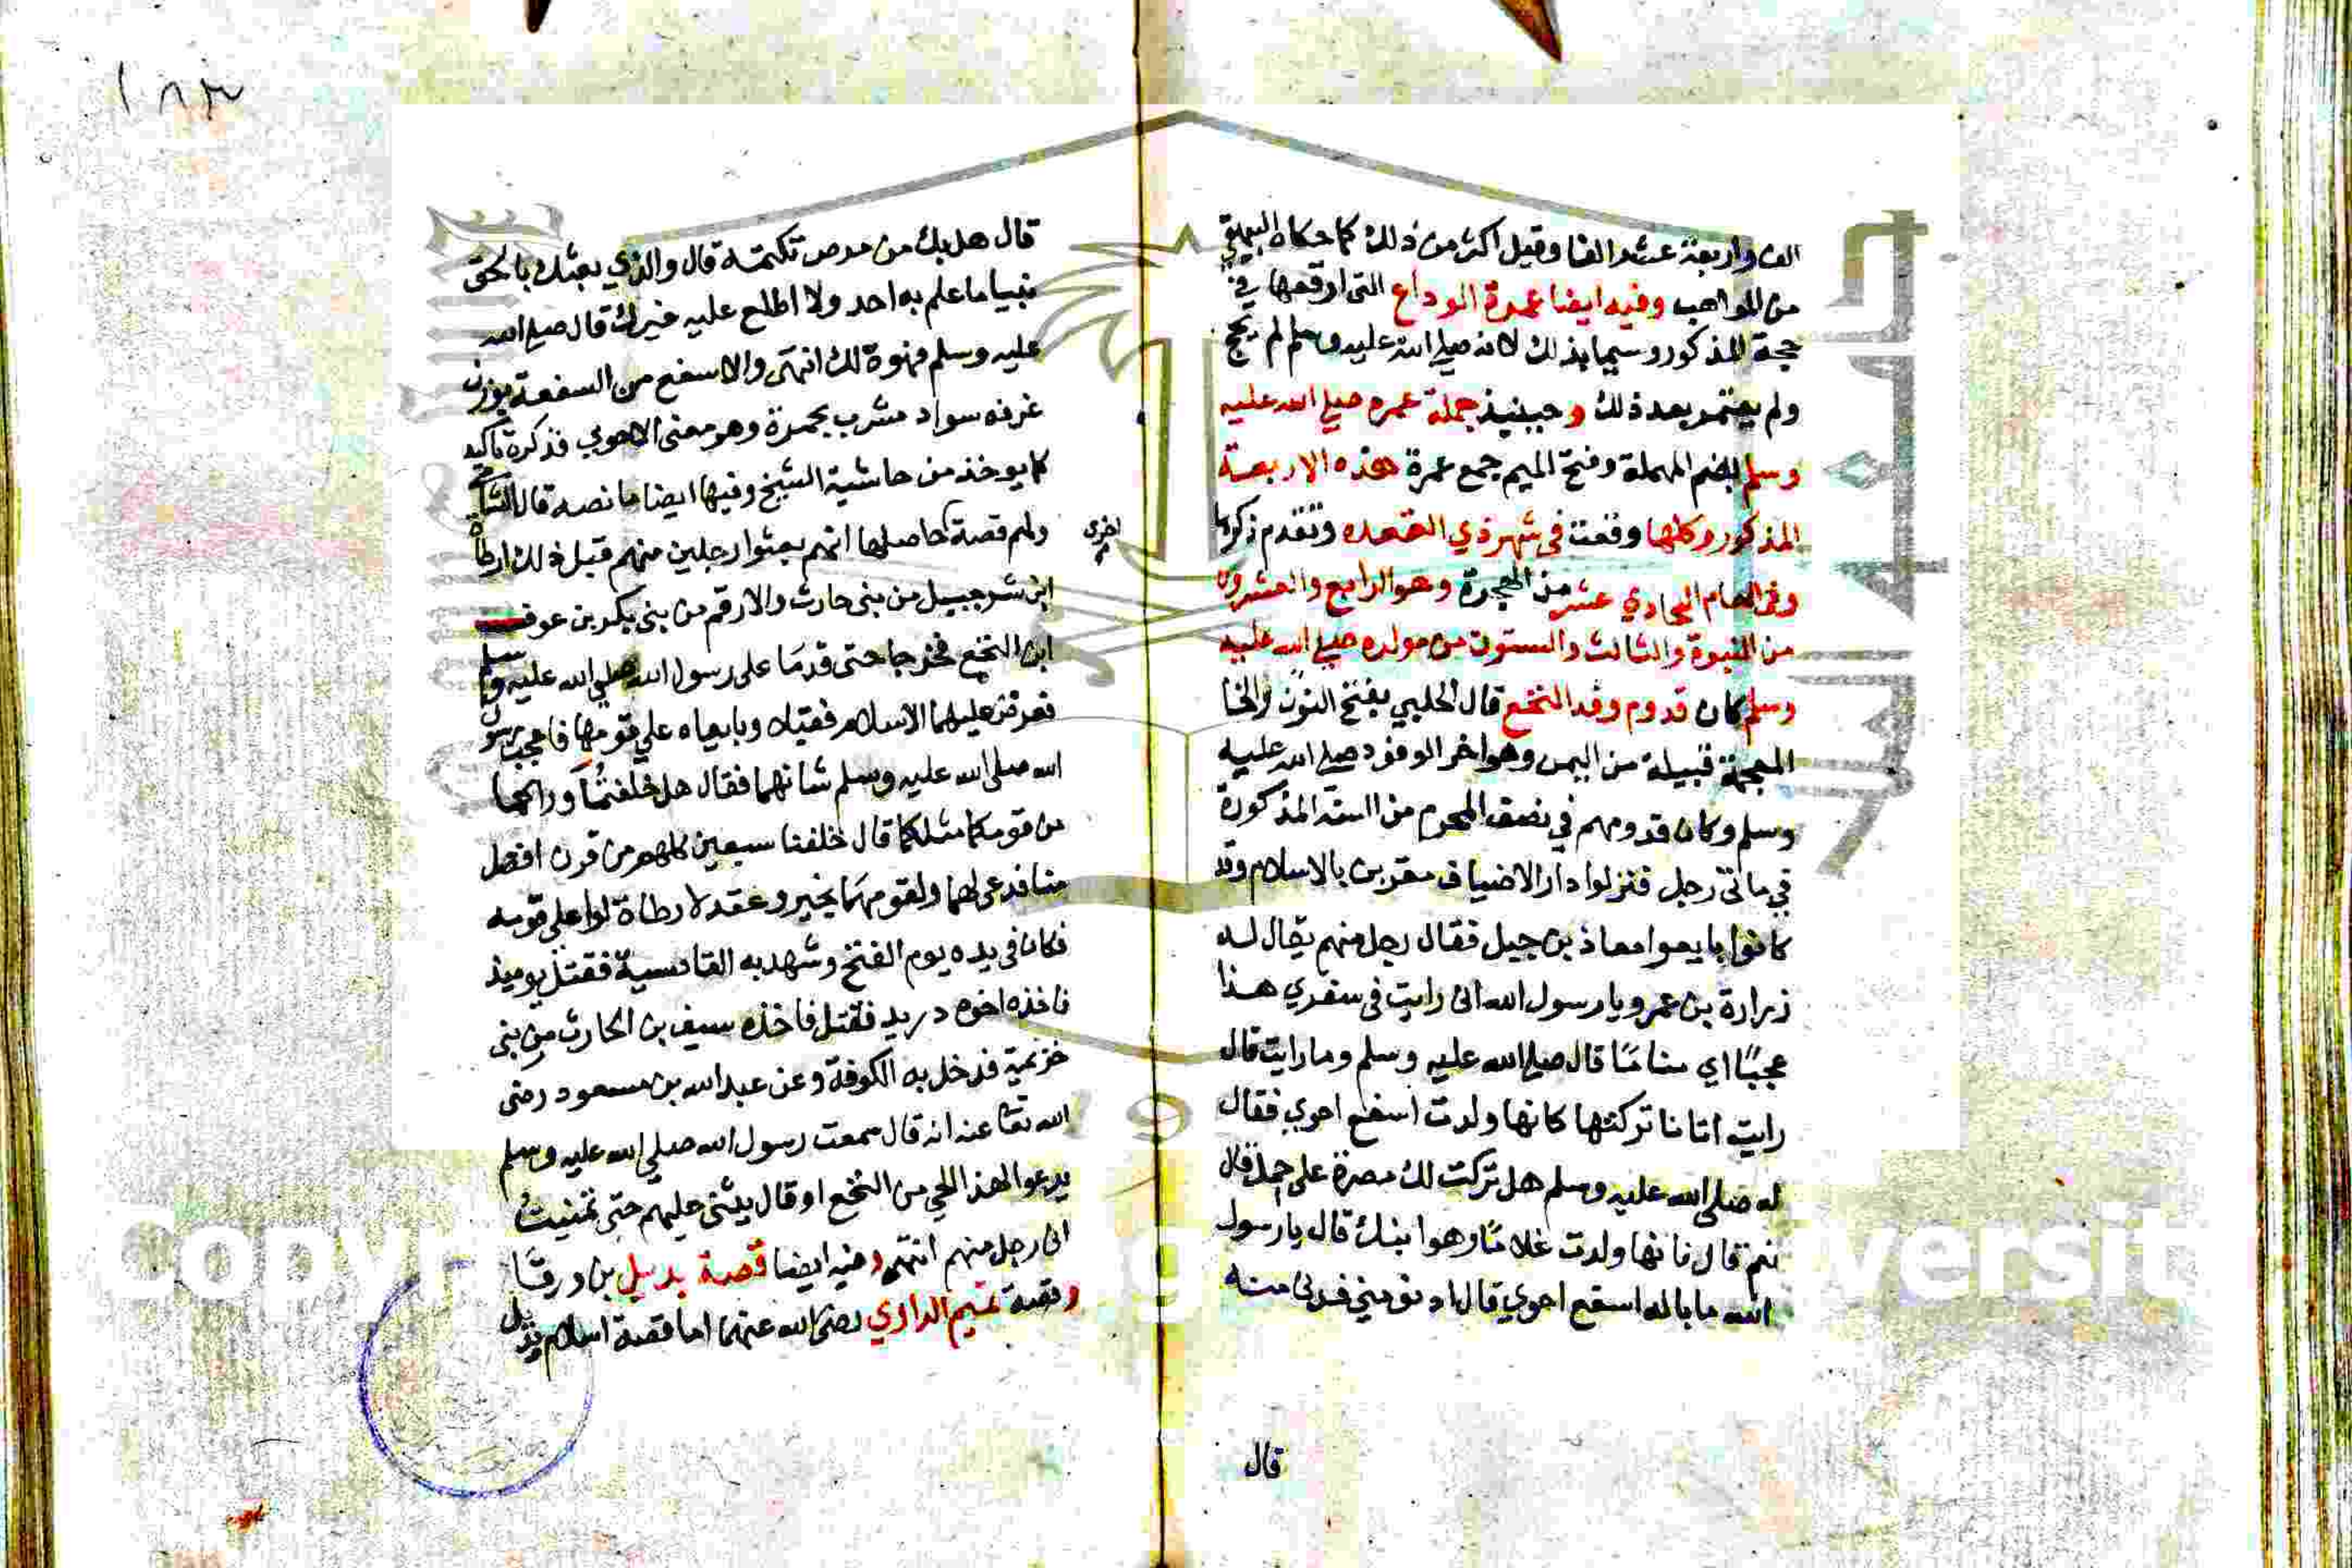 الف واربعة عشر الفا وقيل اكثر من ذلك كما حكاه البيهقي
من المواهب وفيه ايضا عمرة الوداع التي اوقعها في
حجة المذكور وسميا بذلك لانه صلي الله عليه وسلم لم يحج
ولم يعتمر بعد ذلك وحينيذ جملة عمره صلي الله عليه
وسلم بضم المهملة وفتح الميم جمع عمرة هذه الاربعة
المذكور وكلها وقعت في شهر ذي القعده وتقدم ذكرها
وفي العام الحادي عشر من الهجرة وهو الرابع والعشرون
من النبوة والثالث والستون من مولده صلي الله عليه
وسلم كان قدوم وفد النخع قال الحلبي بفتح النون والخا
المعجمة قبيلة من اليمن وهو اخر الوفود صلي الله عليه
وسلم وكان قدومهم في نصف المحرم من السنة المذكورة
في ماتي رجل فنزلوا دار الاضياف مقربين بالاسلام وقد
كانوا بايعوا معاذ بن جبل فقال رجل منهم يقال له
زرارة بن عمرو يا رسول الله اني رايت في سفري هذا
عجبًا اي منامًا قال صلي الله عليه وسلم وما رايت قال
رايت اتانا تركتها كانها ولدت اسفع احوي فقال
له صلي الله عليه وسلم هل تركت لك مصرة على حمل قال
نعم قال فانها ولدت غلامًا وهو ابنك قال يا رسول
الله ما باله اسفع احوي قال ادنو مني فدنى منه
قال
قال هل بك من برص تكتمه قال والذي بعثك بالحق
نبيا ما علم به احد ولا اطلع عليه غيرك قال صلي الله
عليه وسلم فهو ذلك انتهى والاسفع من السفعة بوزن
غرفه سواد مشرب بحمرة وهو معنى الاحوي فذكره تاكيد
كما يوخذ من حاشية الشيخ وفيها ايضا ما نصه قال الشامي
ولهم قصة اخرى حاصلها انهم بعثوا رجلين منهم قبل ذلك ارطاه
ابن شرحبيل من بني حارث والارقم من بني بكر بن عوف
ابن النخع فخرجا حتى قدمَا على رسول الله صلي الله عليه وسلم
فعرض عليهما الاسلام فقبلاه وبايعاه علي قومهما فاعجب رسول
الله صلى الله عليه وسلم شانهما فقال هل خلفتُما وراكما
من قومكما مثلكما قال خلفنا سبعين كلهم من قرن افضل
منا فدعى لهما ولقومهمَا بخير وعقد لارطاة لوا على قومه
فكان في يده يوم الفتح وشهد به القادسية فقتل يوميذ
فاخذه اخوه دريد فقتل فاخذه سيف بن الحارث من بني
خزيمة فدخل به الكوفة وعن عبد الله بن مسعود رضى
الله تعا عنه انه قال سمعت رسول الله صلي الله عليه وسلم
يدعوا لهذا الحي من النخع او قال يثني عليهم حتى تمنيتُ
اني رجل منهم انتهى وفيه ايضا قصة بديل بن ورقَا
وقصة تميم الداري رضى الله عنهما اما قصة اسلام بديل